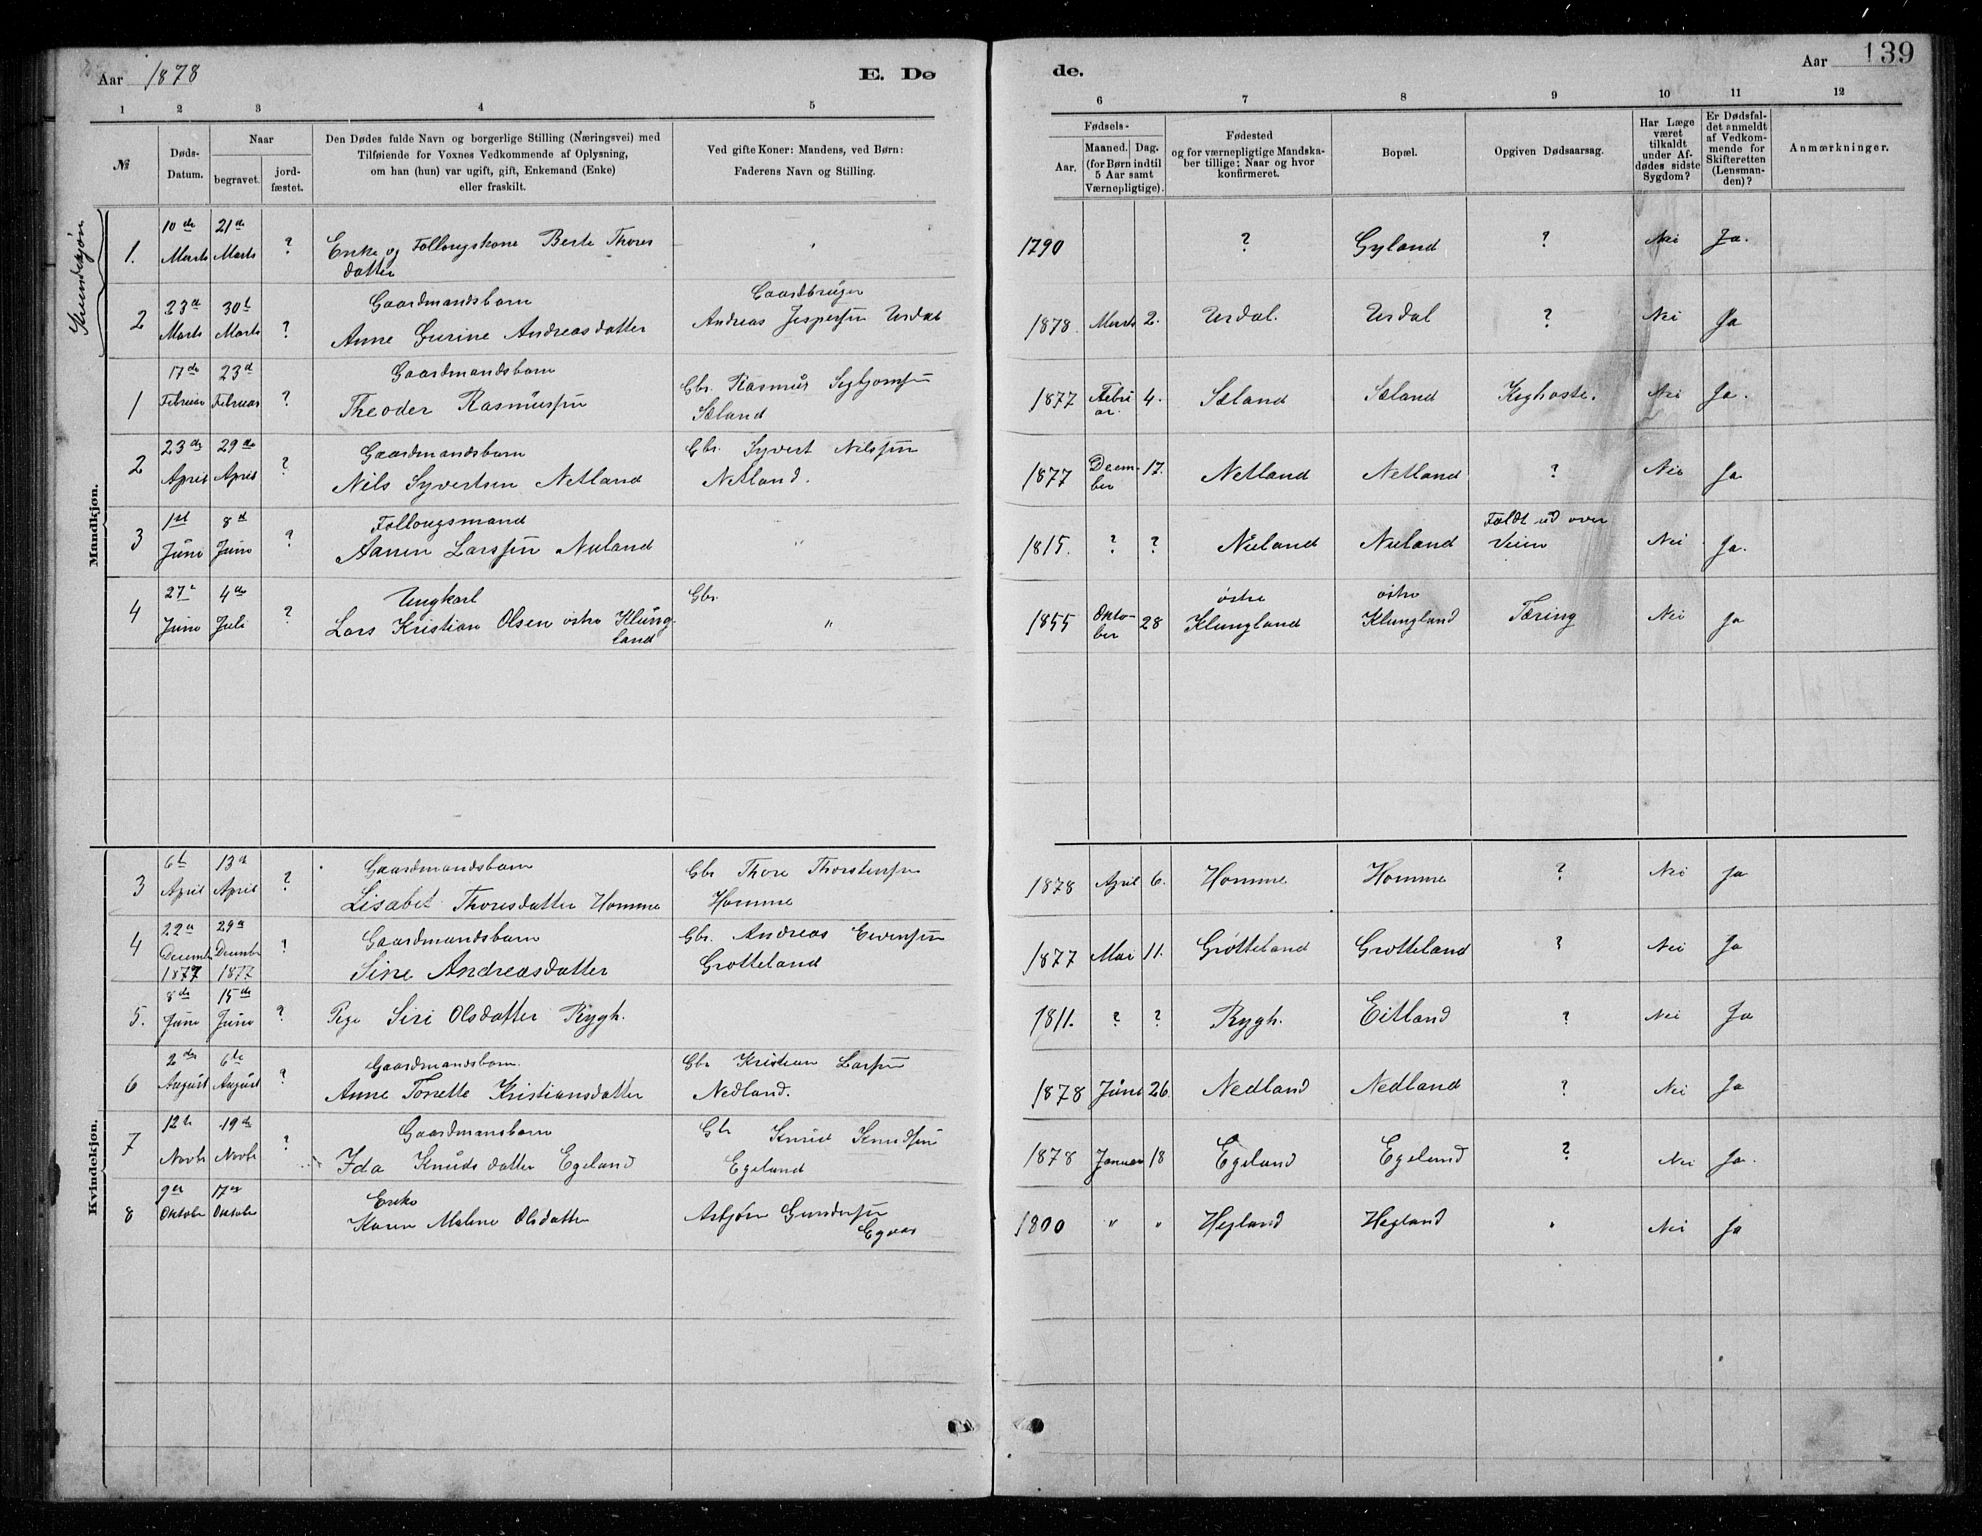 Aar 1878
E. Dø
de.
Aar
139
1 2 3 4 5 6 7 8 9 10 11 12
№
Døds-
Datum.
Naar
begravet.
jord-
fæstet.
Den Dødes fulde Navn og borgerlige Stilling (Næringsvei) med
Tilføiende for Voxnes Vedkommende af Oplysning,
om han (hun) var ugift, gift, Enkemand (Enke)
eller fraskilt.
Ved gifte Koner: Mandens, ved Børn:
Faderens Navn og Stilling.
Fødsels-
Aar.
Maaned. Dag.
(for Børn indtil
5 Aar samt
Værnepligtige).
Fødested
og for værnepligtige Mandska-
ber tillige: Naar og hvor
konfirmeret.
Bopæl.
Opgiven Dødsaarsag.
Har Læge
været
tilkaldt
under Af-
dødes sidste
Sygdom?
Er Dødsfal-
det anmeldt
af Vedkom-
mende for
Skifteretten
(Lensman-
den)?
Anmærkninger.
Kvindekjøn
10de 21de
1. Marts Marts ? Enke og Follougskone Berte Thores
datter
1790 ? Gyland ? Nei Ja.
23d 30t Gaardmandsbarn Gaardbruger
2 Marts Marts ? Anne Gurine Andreasdatter Andreas Jespersen Urdal
1878 Marts 2. Urdal. Urdal ? Nei Ja
Mandkjøn.
17de 23d Gaardmandsbarn
1 Februar Februar ? Theoder Rasmussen Gbr. Rasmus Sigbjornsen
Sæland
1877 Febru
ar. 4. Sæland Sæland Kighoste. Nei Ja.
23de 29de Gaardmandsbarn Gbr. Syvert Nilssen
2 April April ? Nils Syvertsen Netland Netland.
1877 Decem-
ber 17. Netland Netland ? Nei Ja
1ste 8d Follougsmand
3 Juni Juni ? Aanen Larssen Nuland "
1815. ? ? Nuland Nuland Faldt ud over
Veien Nei Ja.
27de 4de Ungkarl Gbr.
4 Juni Juli ? Lars Kristian Olsen østre Klung-
land "
1855 Okto-
ber 28 østre
Klungland østre
Klungland Tæring Nei Ja
Kvindekjøn.
6t 13d Gaardmandsbarn Gbr Thore Thorstensen
3 April April ? Lisabet Thoresdatter Homme Homme
1878 April 6. Homme Homme ? Nei Ja
22d 29d Gaardmandsbarn Gbr. Andreas Evensen
4 Decemb Decembr ? Sine Andreasdatter Grøtteland
1877 1877
1877 Mai 11. Grøtteland Grøtteland ? Nei Ja
8de 15de
5. Juni Juni ? Pige Siri Olsdatter Rygh.
1811. ? ? Rygh. Eitland ? Nei Ja
2de 6te Gaardmandsbarn Gbr Kristian Larsen
6 August August ? Anne Tonette Kristiansdatter Nedland.
1878 Juni 26 Nedland Nedland ? Nei Ja
12te 19de Gaardmansbarn Gbr Knud Knudsen
7 Novbr Novbr ? Ida Knudsdatter Egeland Egeland
1878 Januar 18 Egeland Egeland ? Nei Ja.
9de 17de Enke
8 Oktober Oktober Karen Malene Olsdatter Asbjørn Gundersen
Egaas
1800 " " Hegland Hegland " Nei Ja